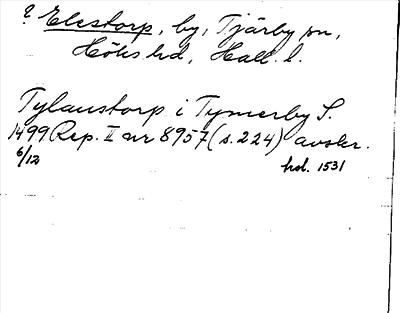 ? Elestorp, by, Tjärby sn,
Höks hd, Hall. l.
Tylaustorp i Tymerby S.
1499 Rep. II nr 8957 (s. 224) avskr.
6/12 hsl. 1531